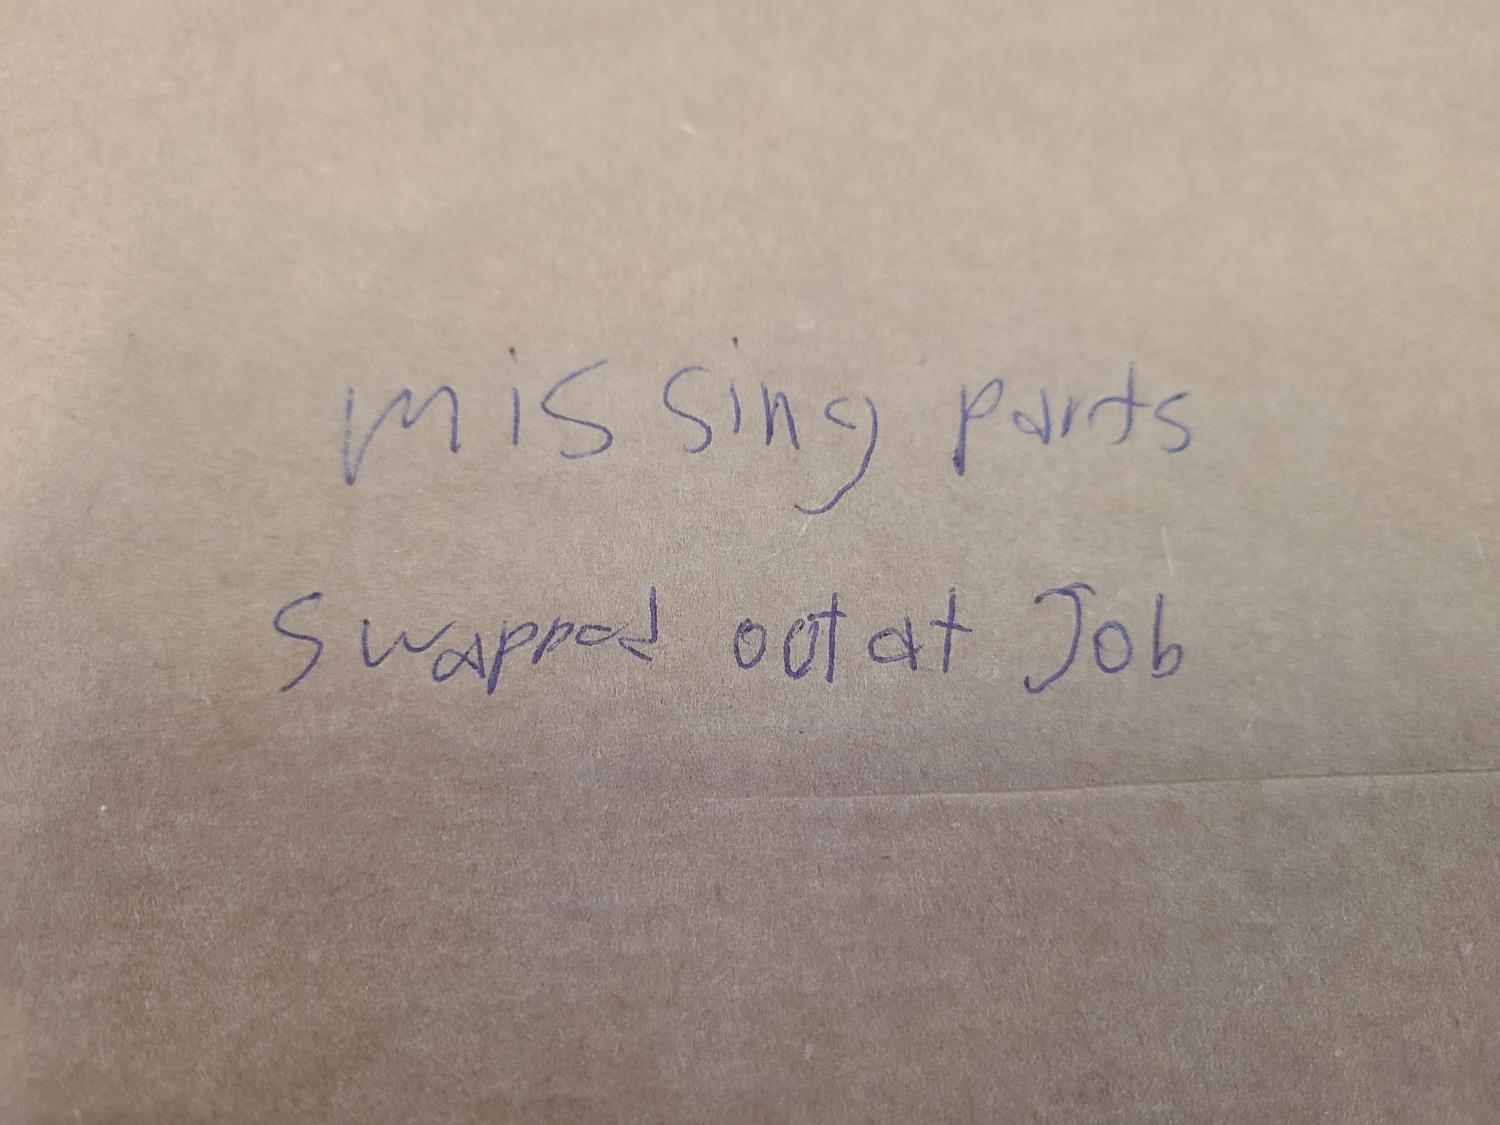 missing parts
Swapped out at Job